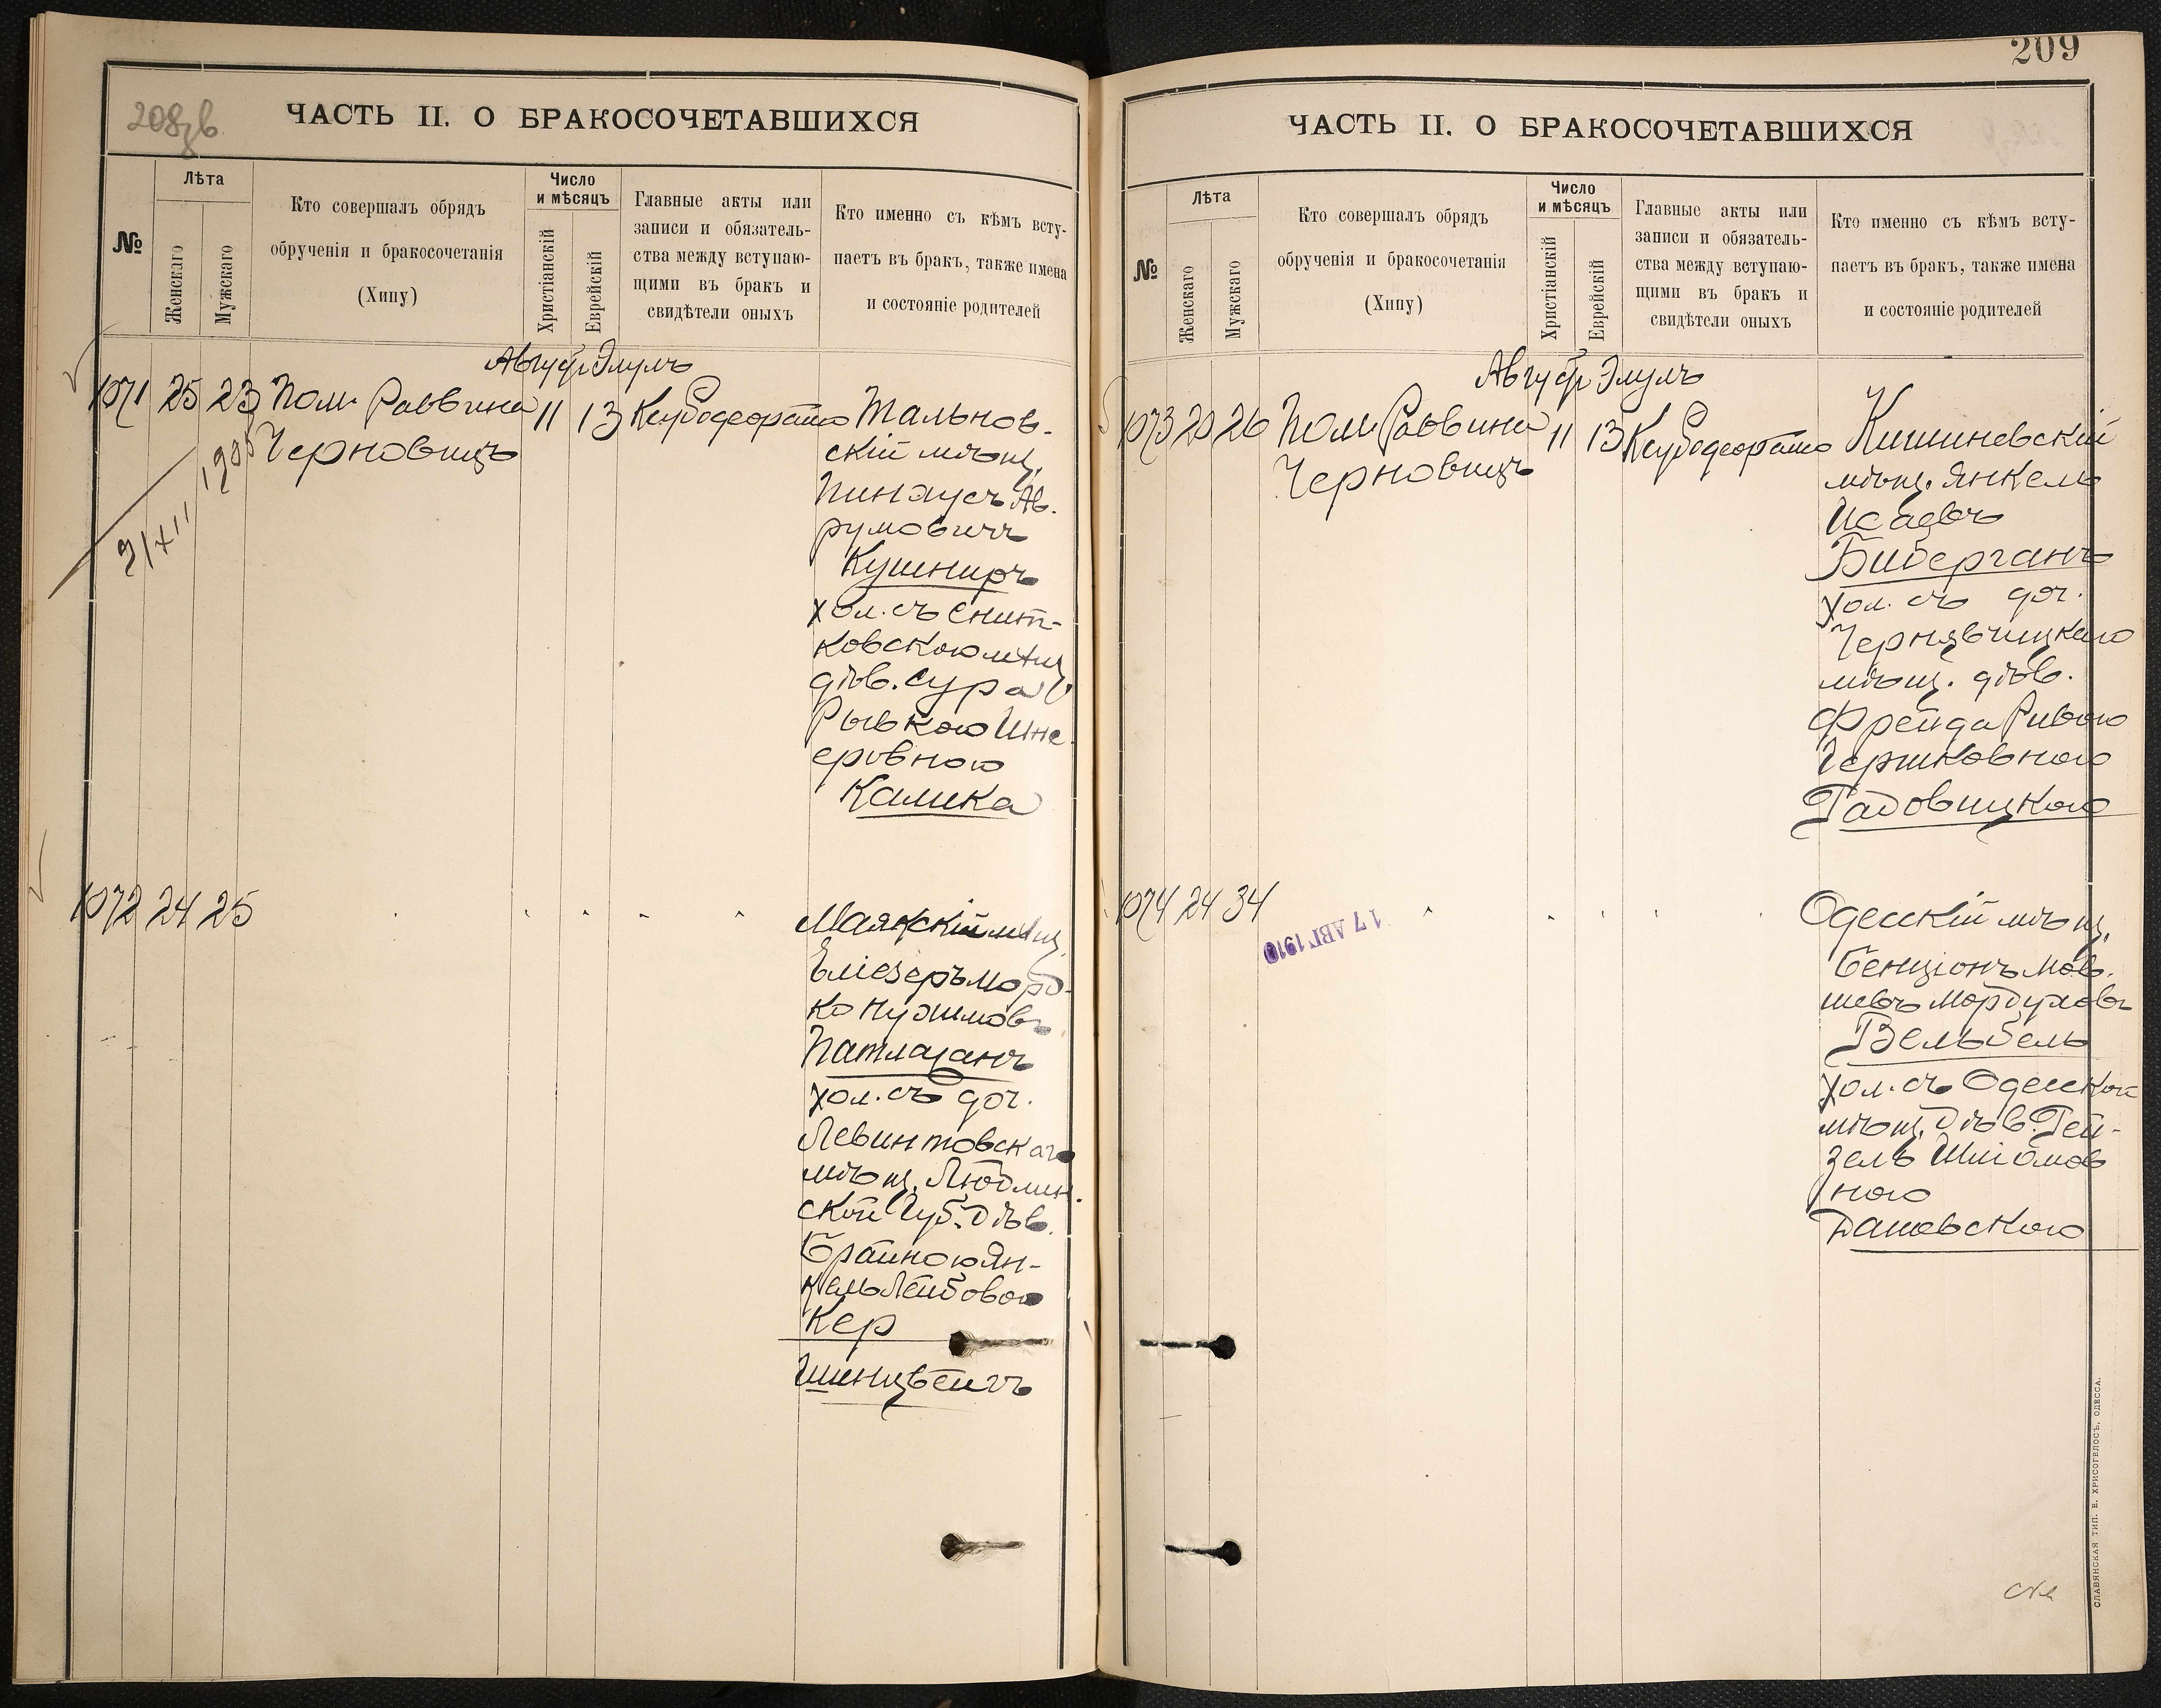 208зв
ЧАСТЬ II. О БРАКОСОЧЕТАВШИХСЯ
№
Лѣта
Женскаго
Мужскаго
Кто совершалъ обрядъ
обрученія и бракосочетанія
(Хипу)
Число
и мѣсяцъ
Христіанскій
Еврейскій
Главные акты или
записи и обязатель-
ства между вступаю-
щими въ бракъ и
свидѣтели оныхъ
Кто именно съ кѣмъ всту-
паетъ въ бракъ, также имена
и состояніе родителей
Август Элулъ
1071 25 23 Пом. Раввина 11 13
Черновицъ
Тальнов-
скій мѣщ.
Пинхусъ Ав-
румовичъ
Кушниръ
хол. съ Снит-
ковскою мѣщ.
дѣв. Сура
Рывкою Шне-
еровною
Калика
1072 24 25
Маякскій мѣщ.
Еліезеръ Мord-
ко Нухимовъ
Патлажанъ
хол. съ доч.
Левинтовскаго
мѣщ. Люблин-
ской Губ. дѣв.
Брайною Ян-
кель Лейбовою
Кер
209
ЧАСТЬ II. О БРАКОСОЧЕТАВШИХСЯ
№
Лѣта
Женскаго
Мужскаго
Кто совершалъ обрядъ
обрученія и бракосочетанія
(Хипу)
Число
и мѣсяцъ
Христіанскій
Еврейскій
Главные акты или
записи и обязатель-
ства между вступаю-
щими въ бракъ и
свидѣтели оныхъ
Кто именно съ кѣмъ всту-
паетъ въ бракъ, также имена
и состояніе родителей
Август Элулъ
1073 26 Пом. Раввина 11 13
Черновицъ
Кишиневскій
мѣщ. Янкель
Исаевъ
Биберганъ
хол. съ доч.
мѣщ. дѣв.
Фрейда Ривою
Гершковною
Гадовицкою
1074 24 34
17 АВГ 1910
Одесскій мѣщ.
Бенціонъ Мов-
шевъ Мордуховъ
Вельбель
хол. съ Одесской
мѣщ. дѣв. Гей-
зель Шліомов
ною
Дашевскою
СЛАВЯНСКАЯ ТИП. Е. ХРИСОГЕЛОСЪ, ОДЕССА.